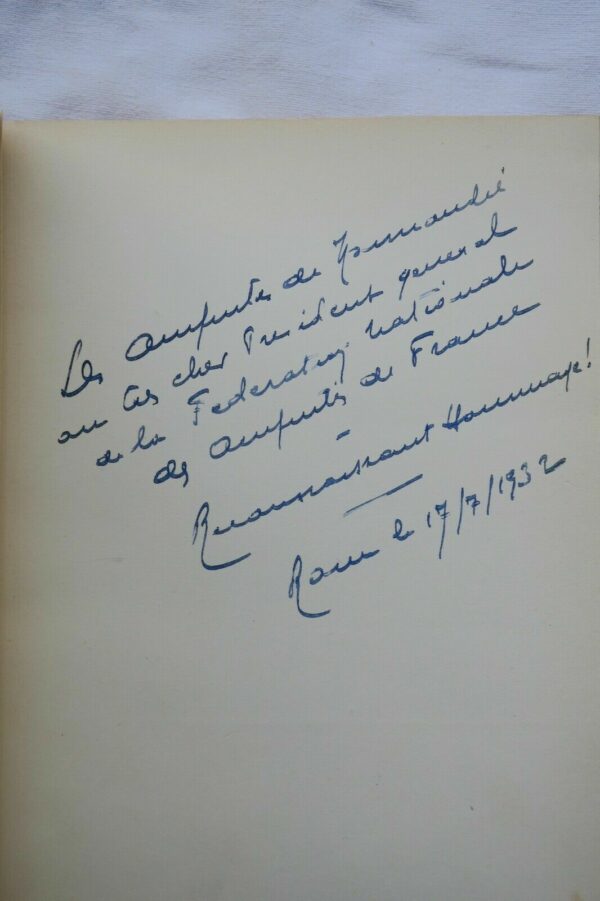 Les amputés de Normandie
au très cher Président général
de la Fédération Nationale
des amputés de France
Reconnaissant Hommage!
Rouen le 17/7/1932